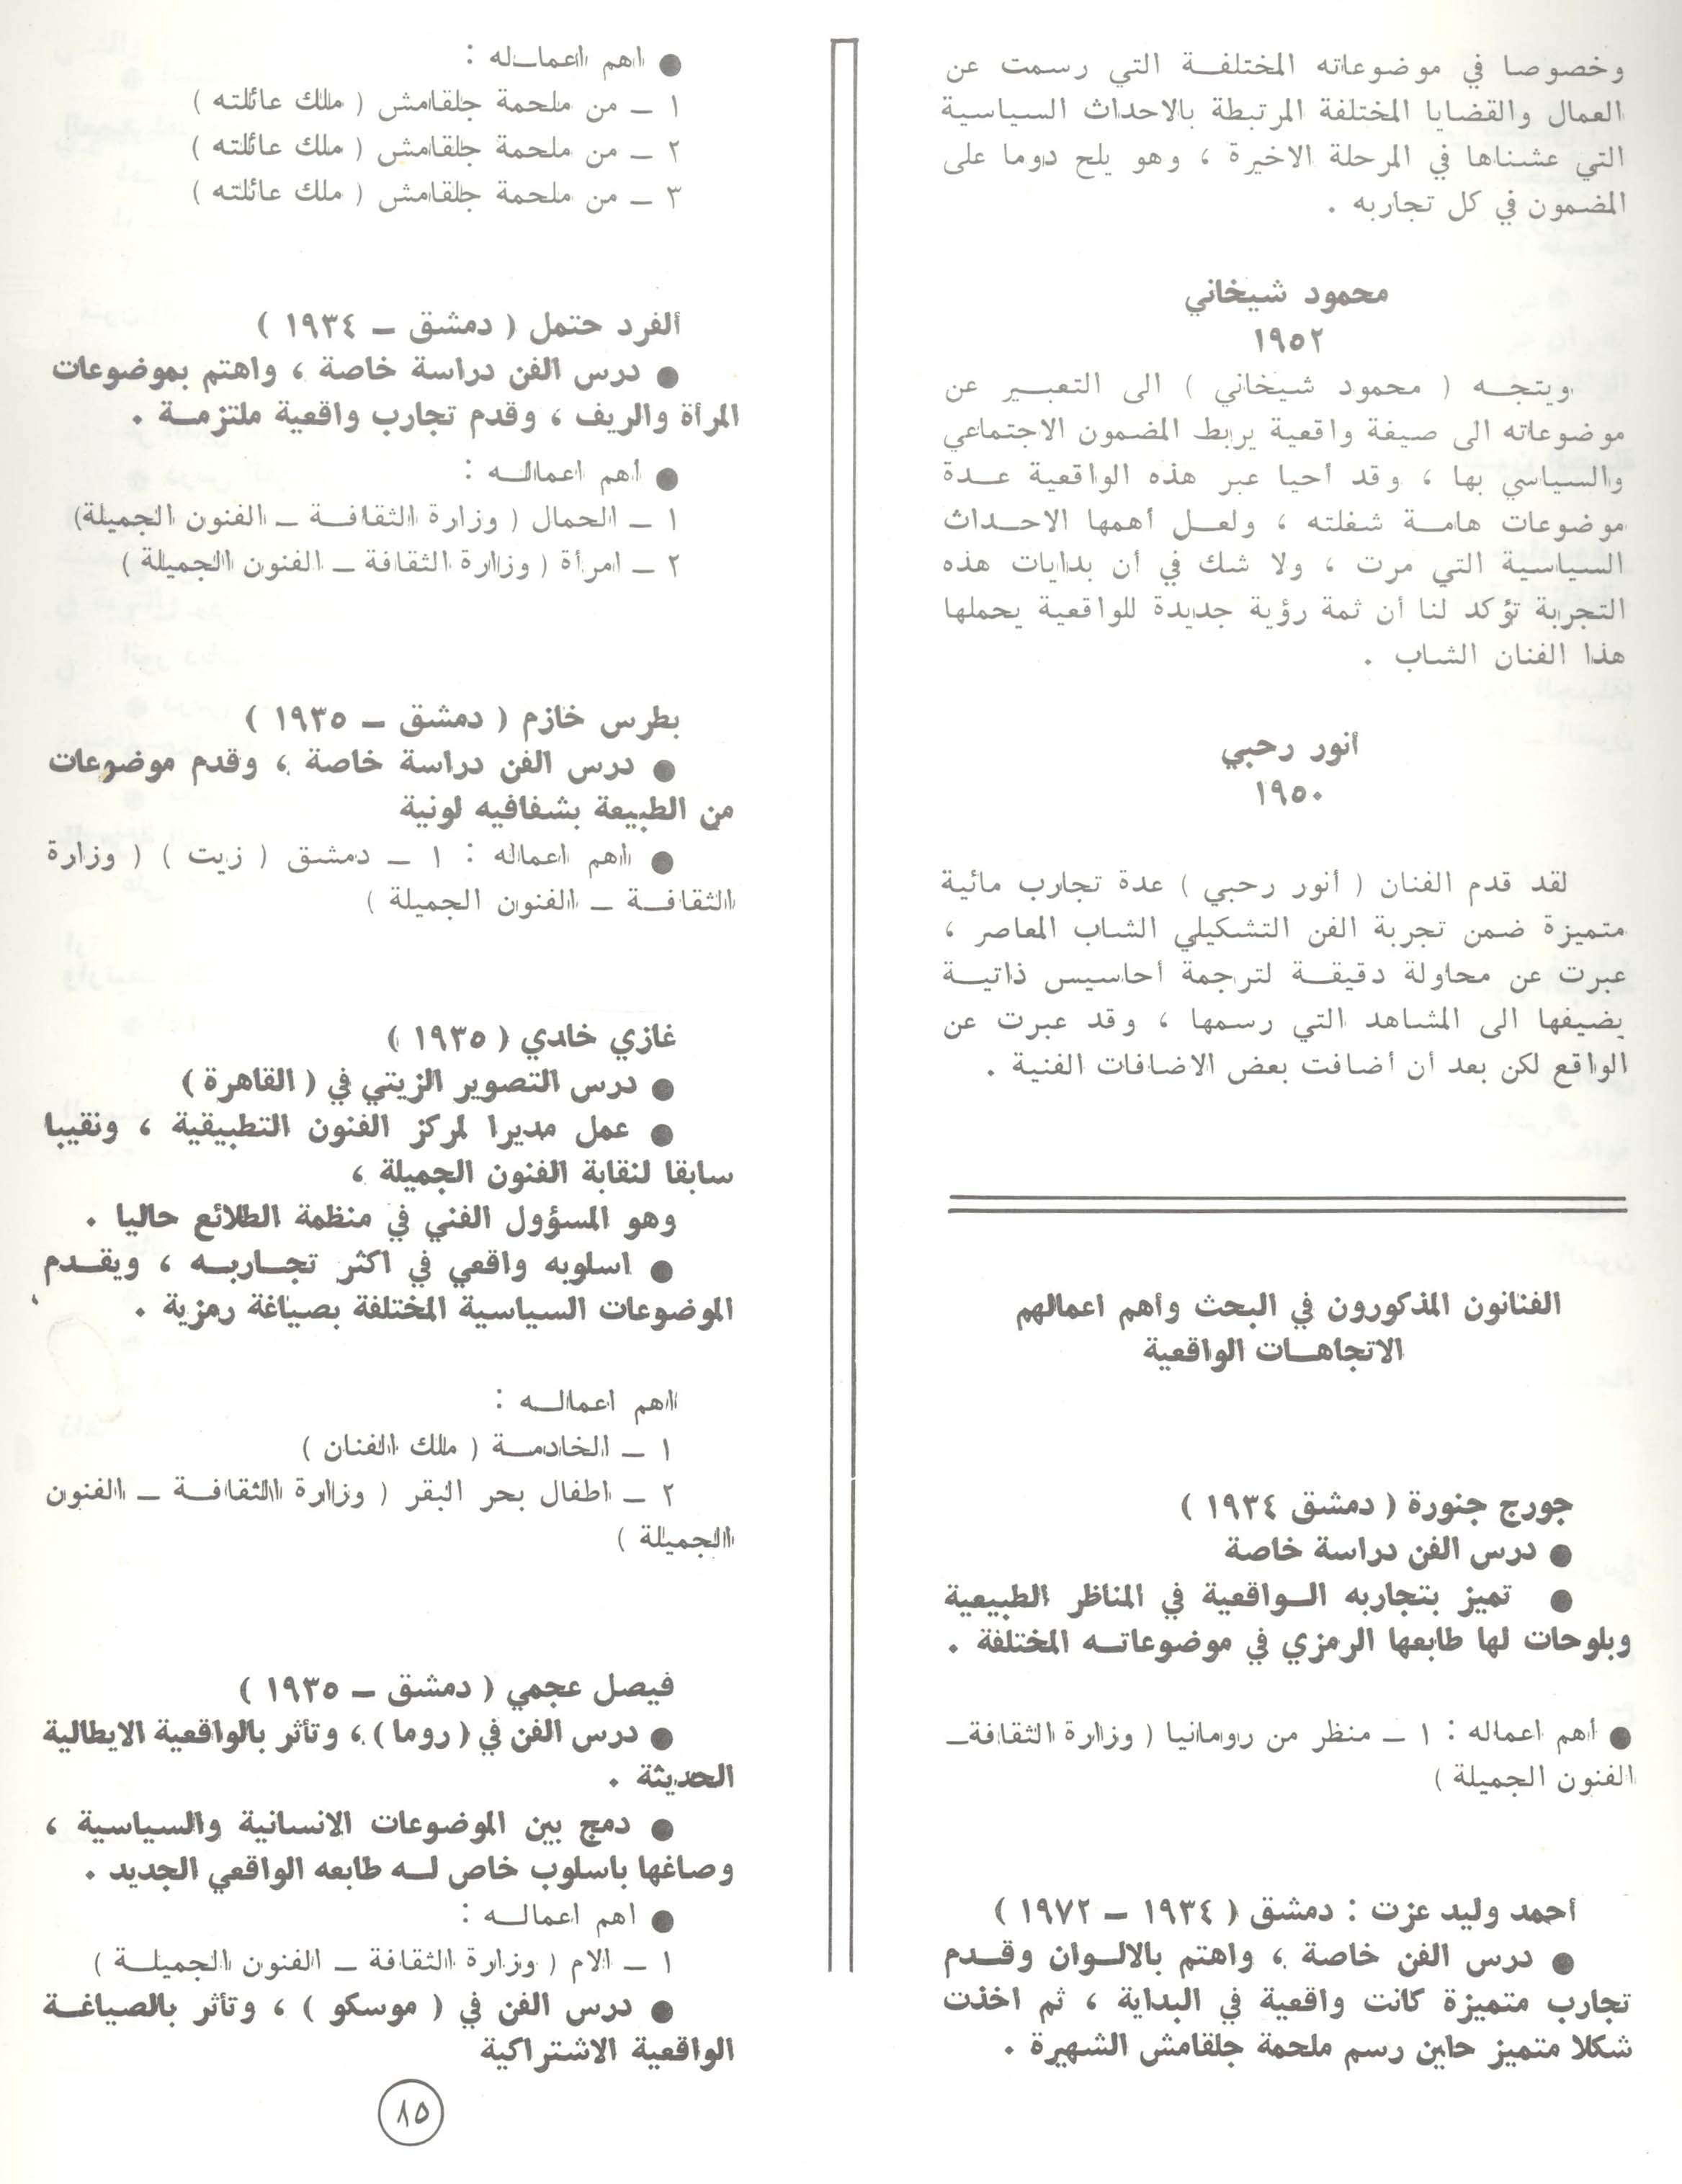 وخصوصا في موضوعاته المختلفة التي رسمت عن
العمال والقضايا المختلفة المرتبطة بالاحداث السياسية
التي عشناها في المرحلة الاخيرة ، وهو يلح دوما على
المضمون في كل تجاربه .
محمود شيخاني
١٩٥٢
ويتجه ( محمود شيخاني ) الى التعبير عن
موضوعاته الى صيغة واقعية يربط المضمون الاجتماعي
والسياسي بها ، وقد أحيا عبر هذه الواقعية عدة
موضوعات هامة شغلته ، ولعل أهمها الاحداث
السياسية التي مرت ، ولا شك في أن بدايات هذه
التجربة تؤكد لنا أن ثمة رؤية جديدة للواقعية يحملها
هذا الفنان الشاب .
أنور رحبي
١٩٥٠
لقد قدم الفنان ( أنور رحبي ) عدة تجارب مائية
متميزة ضمن تجربة الفن التشكيلي الشاب المعاصر ،
عبرت عن محاولة دقيقة لترجمة أحاسيس ذاتية
يضيفها الى المشاهد التي رسمها ، وقد عبرت عن
الواقع لكن بعد أن أضافت بعض الاضافات الفنية .
الفنانون المذكورون في البحث وأهم اعمالهم
الاتجاهات الواقعية
جورج جنورة ( دمشق ١٩٣٤ )
● درس الفن دراسة خاصة
● تميز بتجاربه الواقعية في المناظر الطبيعية
وبلوحات لها طابعها الرمزي في موضوعاته المختلفة .
● أهم اعماله : ١ ـ منظر من رومانيا ( وزارة الثقافة ـ
الفنون الجميلة )
أحمد وليد عزت : دمشق ( ١٩٣٤ ـ ١٩٧٢ )
● درس الفن خاصة ، واهتم بالالوان وقدم
تجارب متميزة كانت واقعية في البداية ، ثم اخذت
شكلا متميز حاين رسم ملحمة جلقامش الشهيرة .
● اهم اعماله :
١ ـ من ملحمة جلقامش ( ملك عائلته )
٢ ـ من ملحمة جلقامش ( ملك عائلته )
٣ ـ من ملحمة جلقامش ( ملك عائلته )
ألفرد حتمل ( دمشق ـ ١٩٣٤ )
● درس الفن دراسة خاصة ، واهتم بموضوعات
المرأة والريف ، وقدم تجارب واقعية ملتزمة .
● أهم اعماله :
١ ـ الحمال ( وزارة الثقافة ـ الفنون الجميلة)
٢ ـ امرأة ( وزارة الثقافة ـ الفنون الجميلة )
بطرس خازم ( دمشق ـ ١٩٣٥ )
● درس الفن دراسة خاصة ، وقدم موضوعات
من الطبيعة بشفافيه لونية
● اهم اعماله : ١ ـ دمشق ( زيت ) ( وزارة
الثقافة ـ الفنون الجميلة )
غازي خالدي ( ١٩٣٥ )
● درس التصوير الزيتي في ( القاهرة )
● عمل مديرا لمركز الفنون التطبيقية ، ونقيبا
سابقا لنقابة الفنون الجميلة ،
وهو المسؤول الفني في منظمة الطلائع حاليا .
● اسلوبه واقعي في اكثر تجاربه ، ويقدم
الموضوعات السياسية المختلفة بصياغة رمزية .
اهم اعماله :
١ ـ الخادمة ( ملك الفنان )
٢ ـ اطفال بحر البقر ( وزارة الثقافة ـ الفنون
الجميلة )
فيصل عجمي ( دمشق ـ ١٩٣٥ )
● درس الفن في ( روما ) ، وتأثر بالواقعية الايطالية
الحديثة .
● دمج بين الموضوعات الانسانية والسياسية ،
وصاغها باسلوب خاص له طابعه الواقعي الجديد .
● اهم اعماله :
١ ـ الام ( وزارة الثقافة ـ الفنون الجميلة )
● درس الفن في ( موسكو ) ، وتأثر بالصياغة
الواقعية الاشتراكية
٨٥